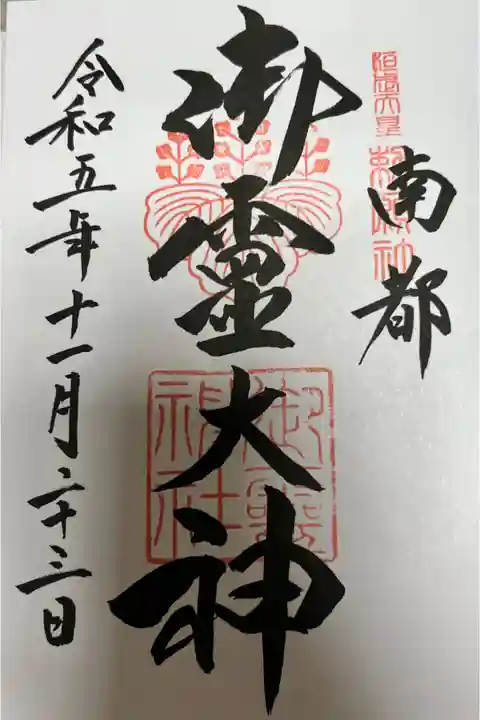 桓武天皇勅願社
南都
御霊大神
御霊神社
令和五年十一月二十三日